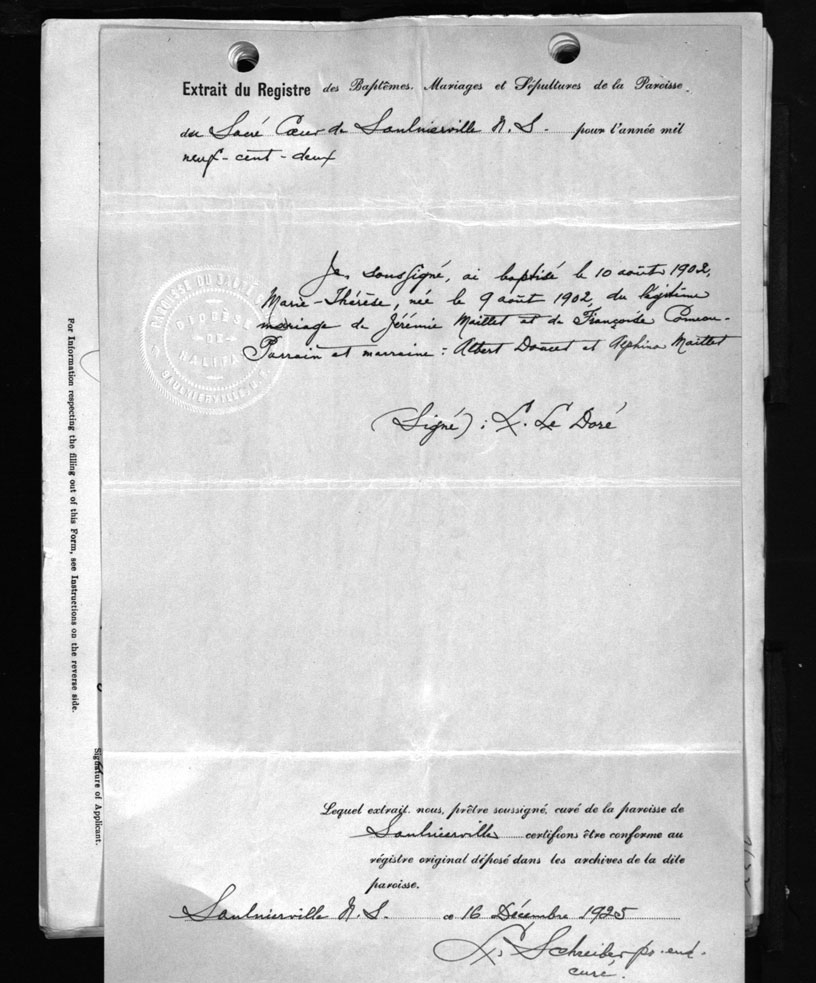 Extrait du Registre des Baptêmes. Mariages et Sépultures de la Paroisse
du Sacré Cœur de Saulnierville N. S. pour l'année mil
neuf-cent-deux
Je, soussigné, ai baptisé le 10 août 1902,
Marie-Thérèse, née le 9 août 1902, du légitime
mariage de Jérémie Maillet et de Françoise Comeau.
Parrain et marraine : Albert Doucet et Alphina Maillet
(Signé) : L. Le Doré
PAROISSE DU SACRÉ
SAULNIERVILLE, N. S.
DIOCÈSE
DE
HALIFAX
For Information respecting the filling out of this Form, see Instructions on the reverse side.
Signature of Applicant.
Lequel extrait, nous, prêtre soussigné, curé de la paroisse de
Saulnierville certifions être conforme au
régistre original déposé dans les archives de la dite
paroisse.
Saulnierville N. S. ce 16 Décembre 1925
Schreiber
curé.